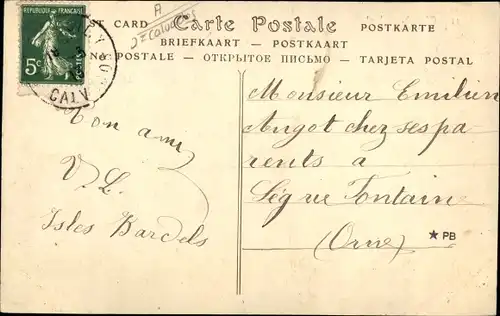 RÉPUBLIQUE FRANÇAISE
5c
POSTES
CALV
A
POST CARD Carte Postale POSTKARTE
BRIEFKAART - POSTKAART
POSTALE - ОТКРЫТОЕ ПИСЬМО - TARJETA POSTAL
Mon ami
V L.
Isles Bardels
Monsieur Emilien
Angot chez ses pa
rents a
Ségrie Fontaine
(Orne)
★ PB